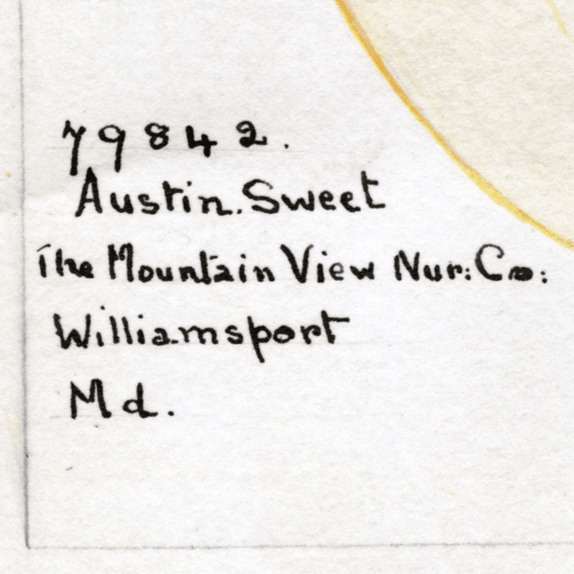 79842.
Austin.Sweet
The Mountain View Nur: Co:
Williamsport
Md.